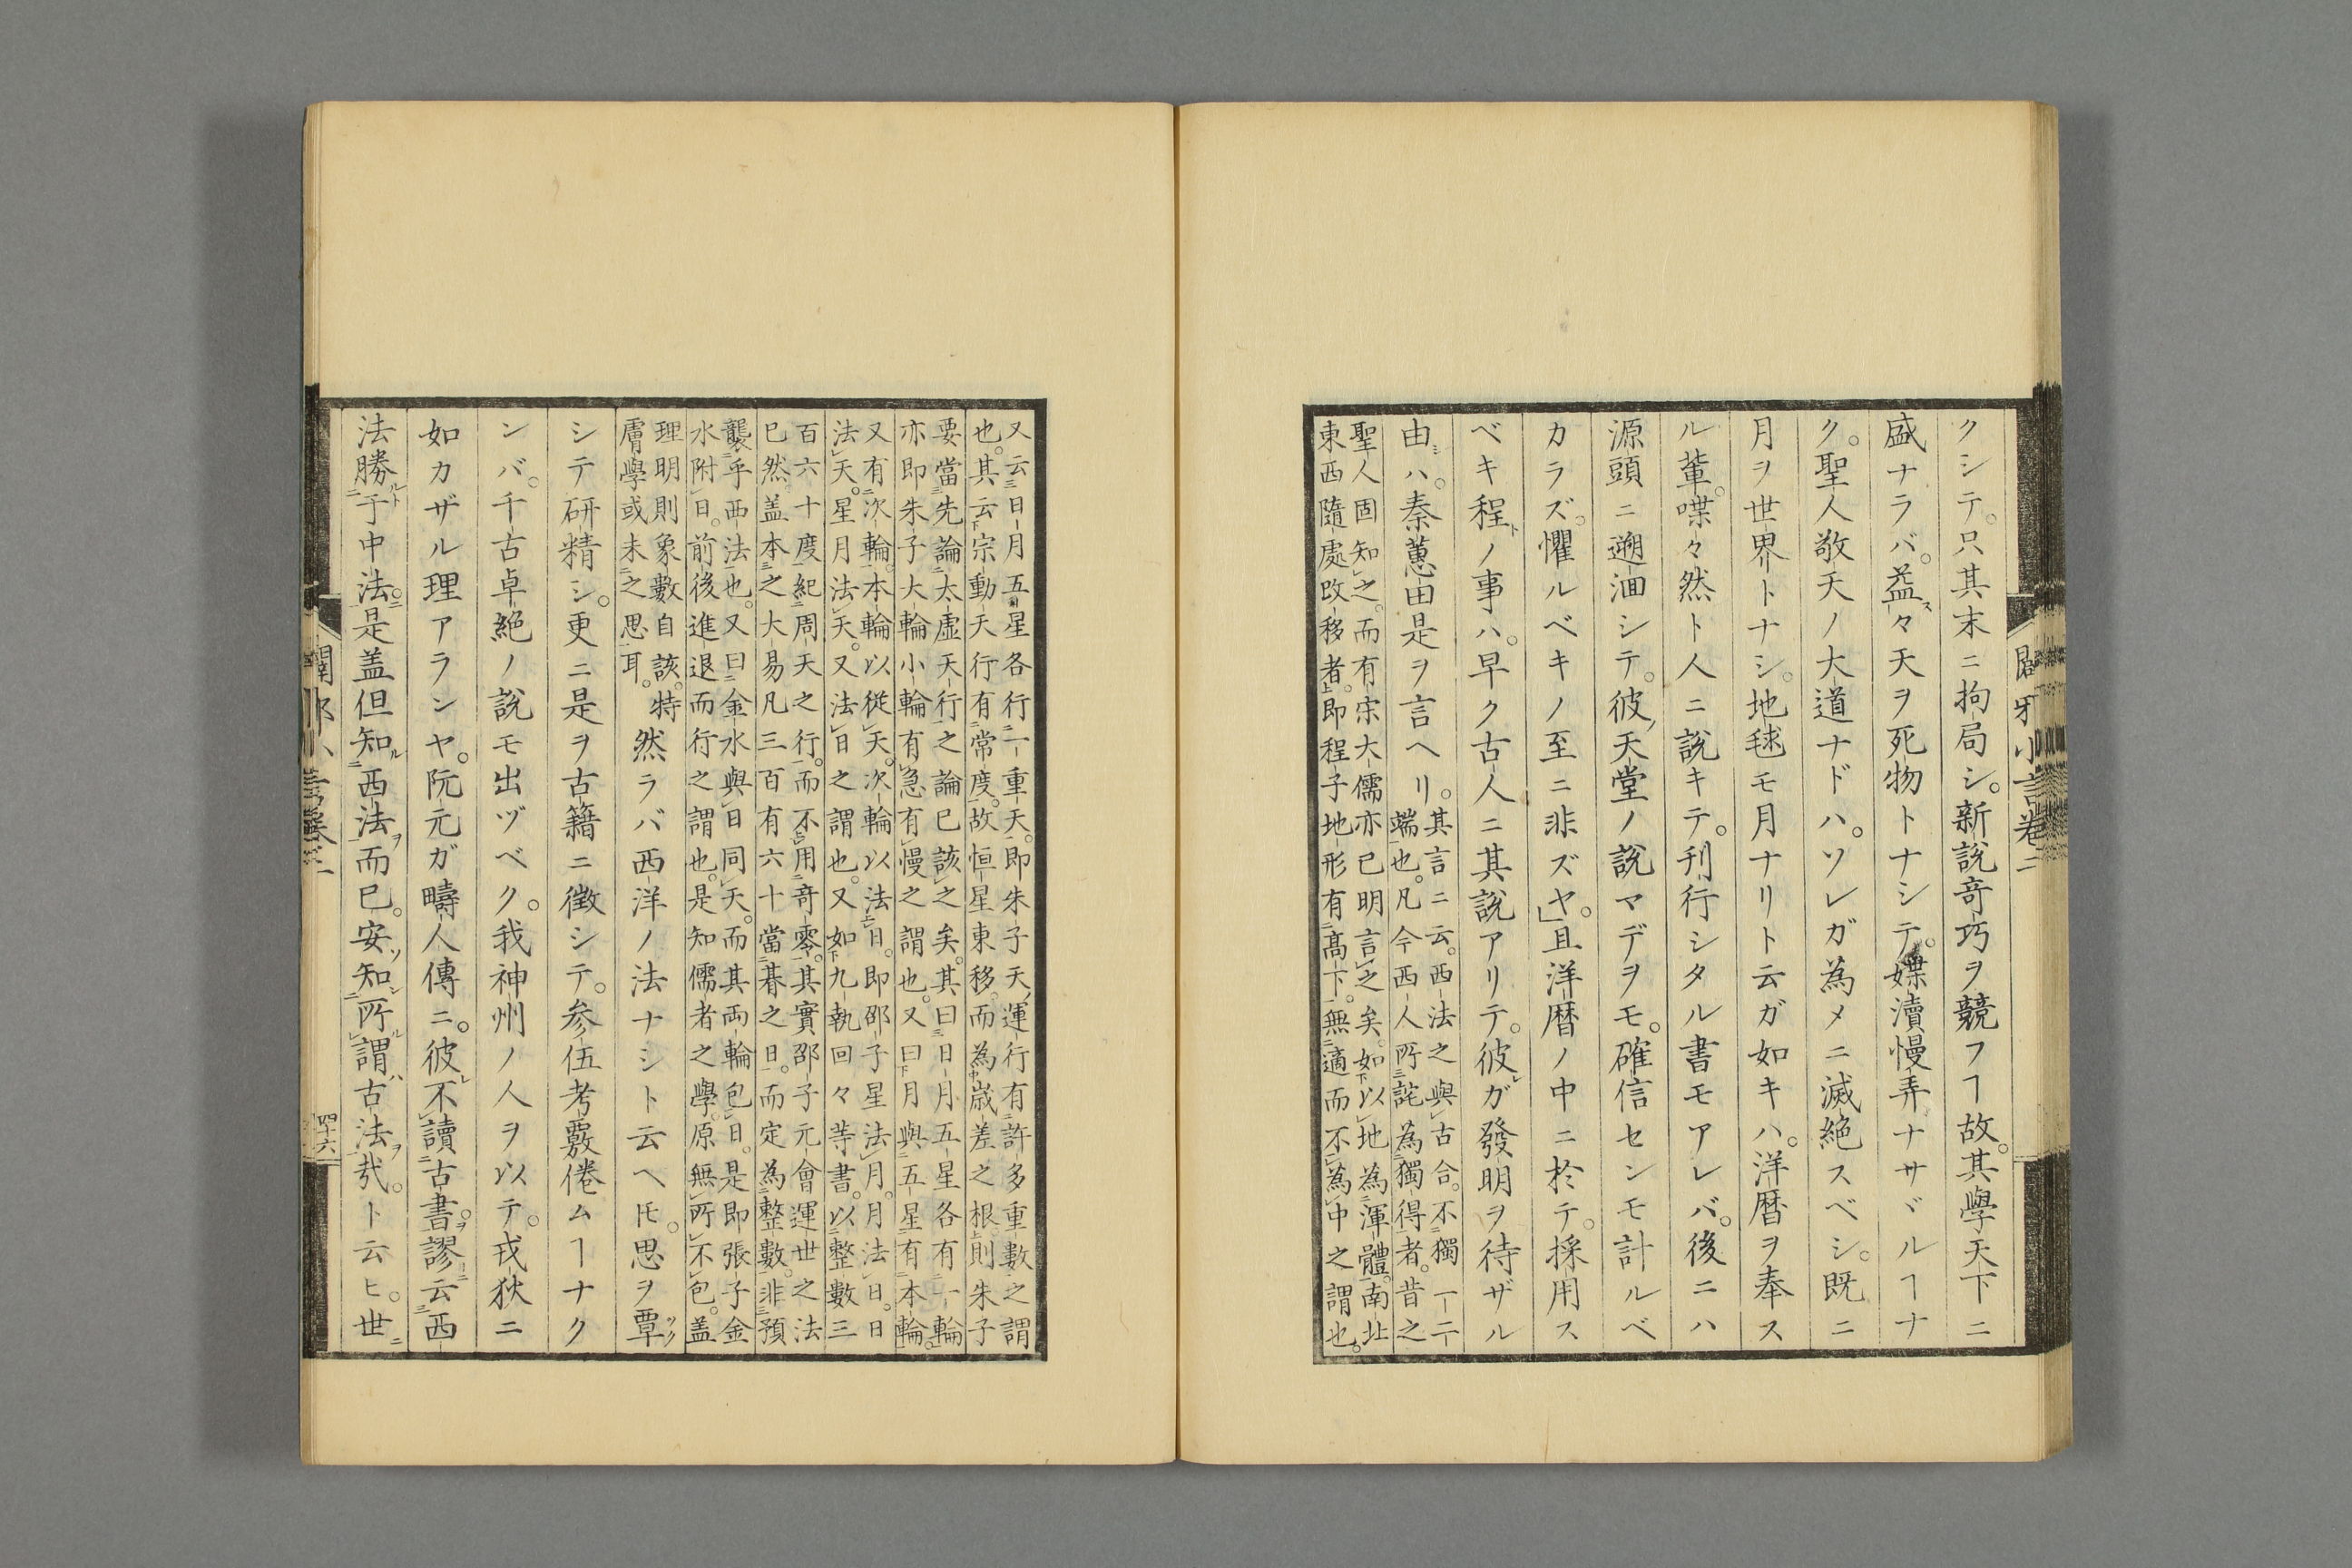 クシテ。只其末ニ拘局シ。新説奇巧ヲ競フヿ故。其學天下ニ
盛ナラバ。益々天ヲ死物トナシテ。媟瀆慢弄ナサヾルヿナ
ク。聖人敬天ノ大道ナドハ。ソレガ為メニ滅絶スベシ。既ニ
月ヲ世界トナシ。地毬モ月ナリト云ガ如キハ。洋暦ヲ奉ス
ル輩。喋々然ト人ニ説キテ。刊行シタル書モアレバ。後ニハ
源頭ニ遡洄シテ。彼ノ天堂ノ説マデヲモ。確信センモ計ルベ
カラズ。懼ルベキノ至ニ非ズヤ」。且洋暦ノ中ニ於テ。採用ス
ベキ程ノ事ハ。早ク古人ニ其説アリテ。彼レガ發明ヲ待ザル
由ハ。秦蕙田是ヲ言ヘリ。
其言ニ云。西法之與古合。不獨一二
端也。凡今西人所詫為獨得者。昔之
聖人固知之。而有宋大儒亦已明言之矣。如以地為渾體。南北
東西隨處改移者。即程子地形有高下。無適而不為中之謂也。
闢邪小言卷二
又云日月五星各行一重天。即朱子天運行有許多重數之謂
也。其云宗動天行有常度。故恒星東移。而為歳差之根。則朱子
要當先論太虚天行之論已該之矣。其曰日月五星各有一輪
亦即朱子大輪小輪有急有慢之謂也。又曰月與五星有本輪。
又有次輪。本輪以從天。次輪以法日。即邵子星法月。月法日。日
法天。星月法天。又法日之謂也。又如九執回々等書。以整數三
百六十度紀周天之行。而不用奇零。其實邵子元會運世之法
已然蓋本之大易凡三百有六十當朞之日。而定為整數。非預
襲乎西法也。又曰金水與日同天。而其両輪包日。是即張子金
水附日。前後進退而行之謂也。是知儒者之學。原無所不包。蓋
理明則象數自該。特
膚學或未之思耳。
然ラバ西洋ノ法ナシト云ヘ𪜈。思ヲ覃
シテ研精シ。更ニ是ヲ古籍ニ徴シテ。参伍考覈倦ムヿナク
ンバ。千古卓絶ノ説モ出ヅベク。我神州ノ人ヲ以テ。戎狄ニ
如カザル理アランヤ。阮元ガ疇人傳ニ。彼不讀古書。謬云西
法勝于中法。是蓋但知西法而已。安知所謂古法哉。ト云ヒ。世
闢邪小言卷二
四十六